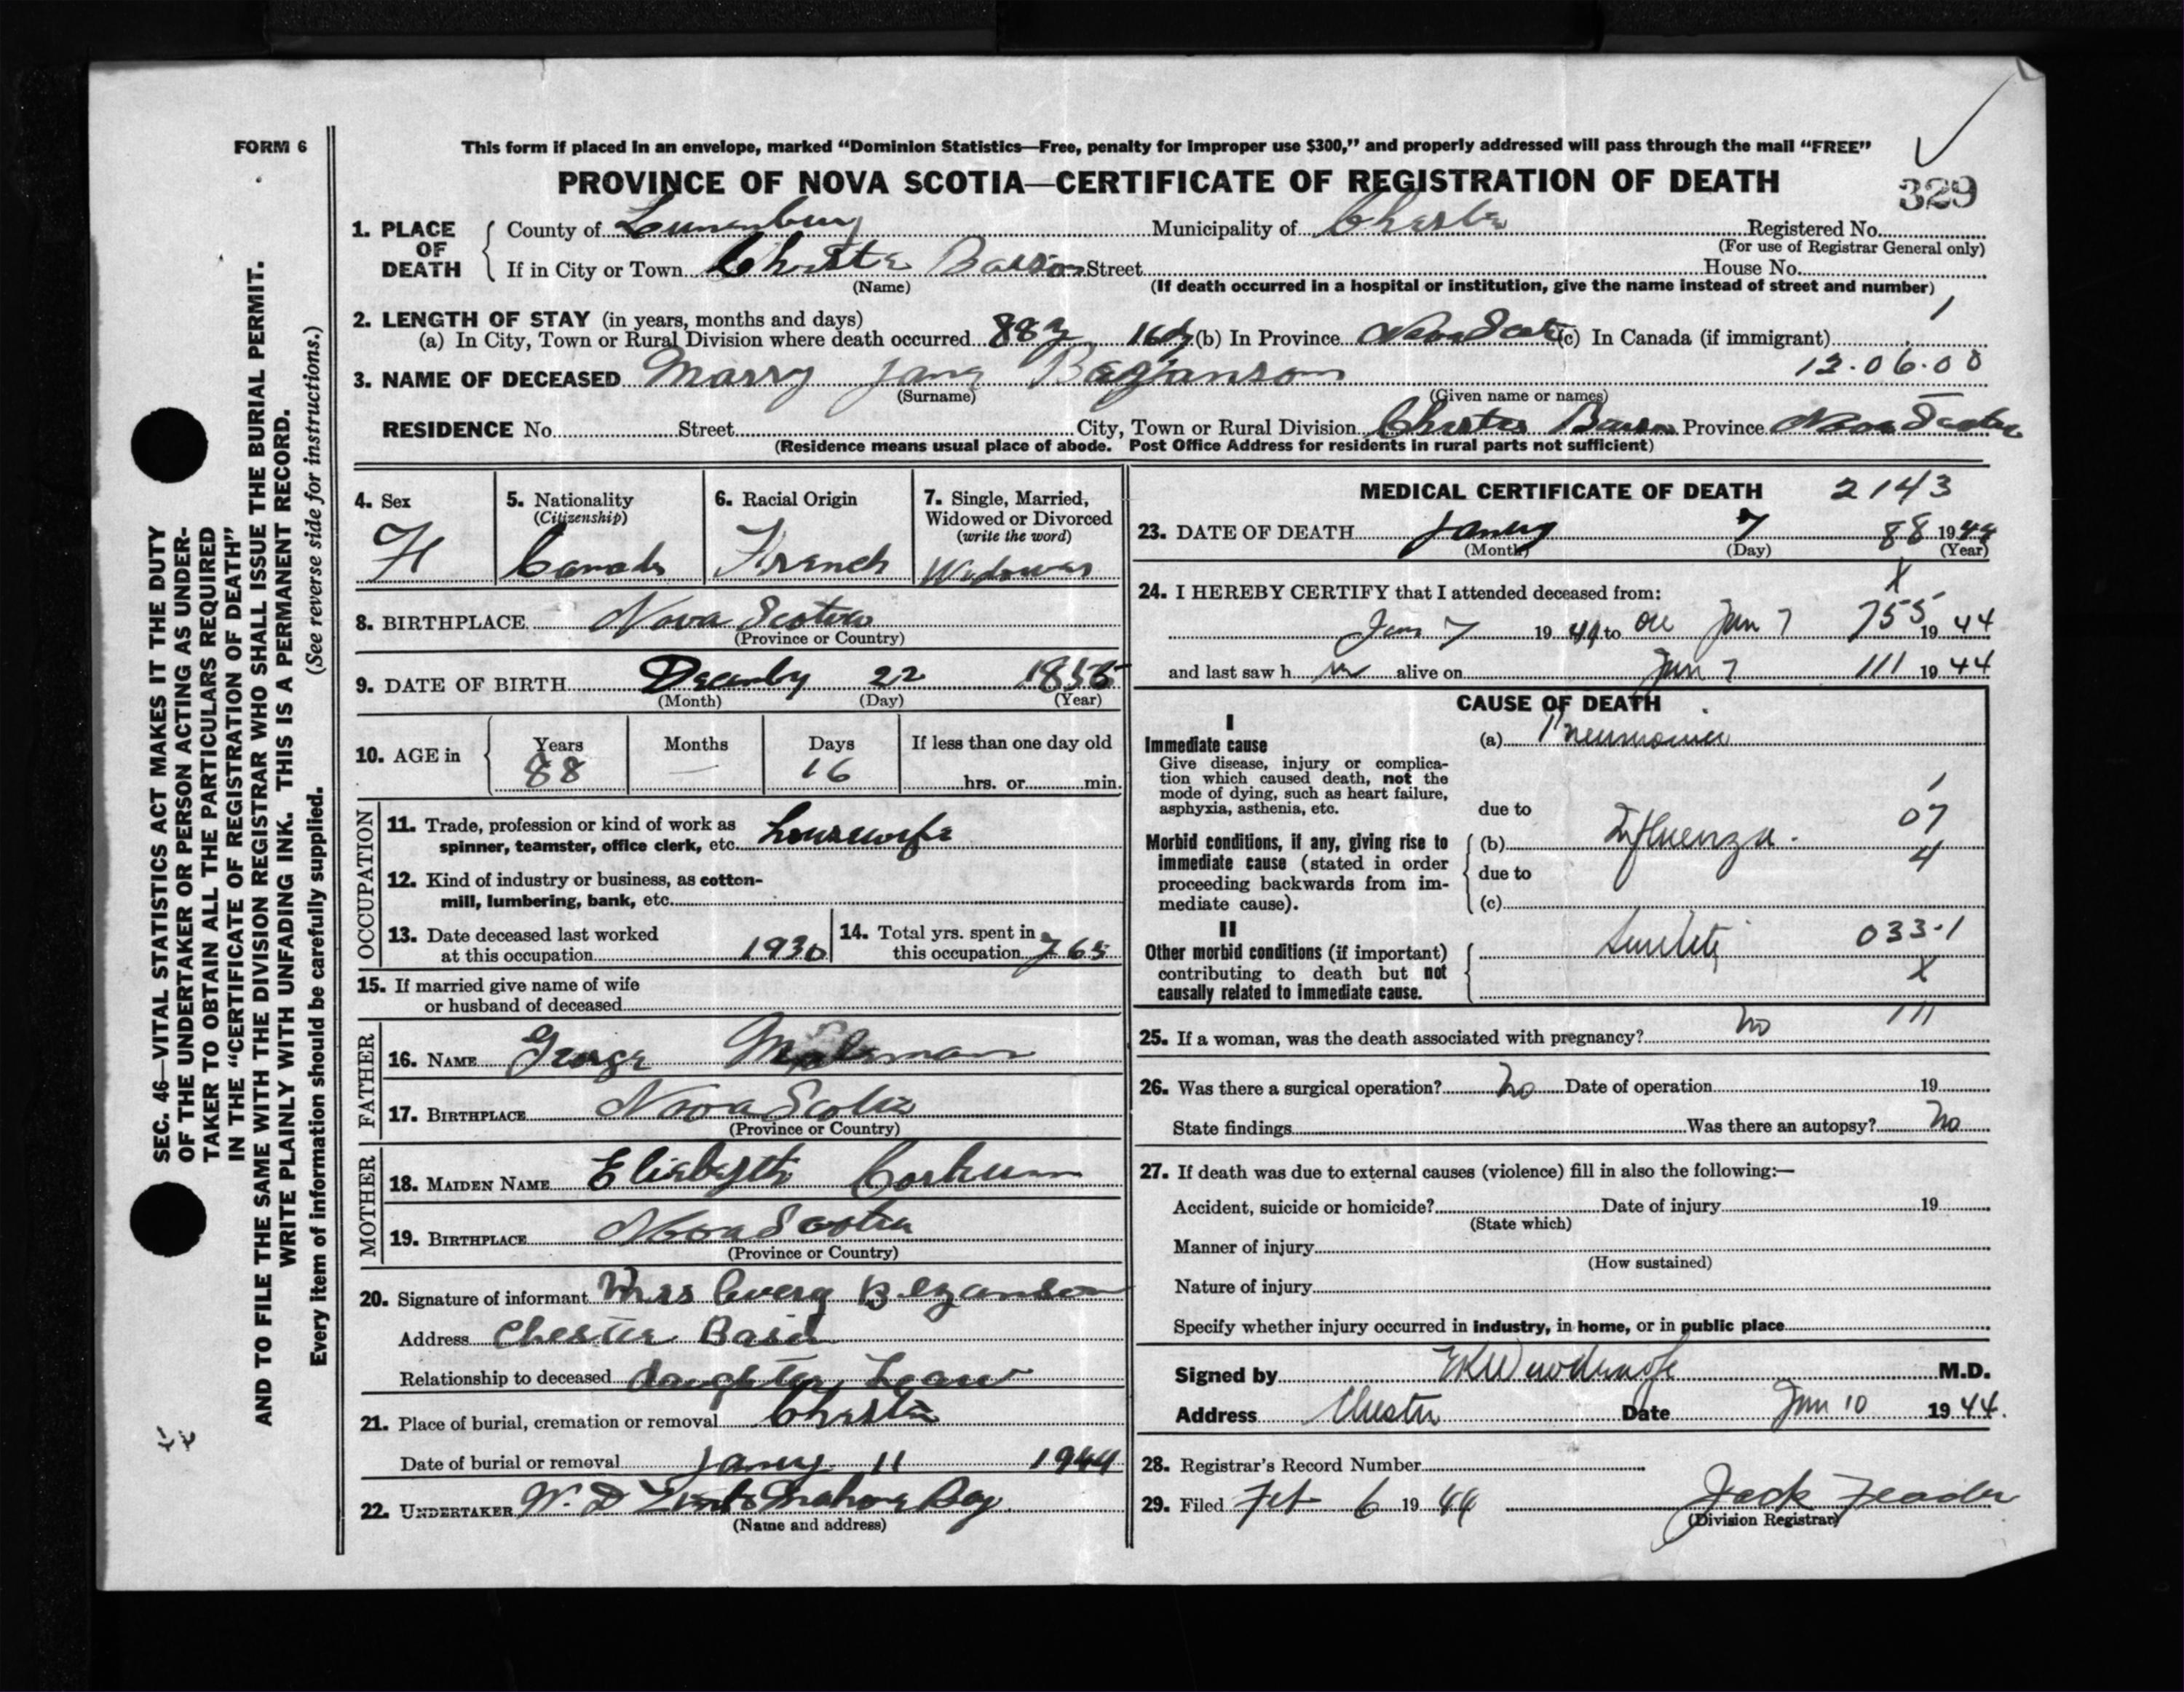 FORM 6
This form if placed in an envelope, marked “Dominion Statistics—Free, penalty for improper use $300,” and properly addressed will pass through the mail “FREE”
PROVINCE OF NOVA SCOTIA—CERTIFICATE OF REGISTRATION OF DEATH
329
1. PLACE OF DEATH
County of Lunenburg Municipality of Chester Registered No.
(For use of Registrar General only)
If in City or Town Chester Street House No.
(Name) (If death occurred in a hospital or institution, give the name instead of street and number)
2. LENGTH OF STAY (in years, months and days) 1
(a) In City, Town or Rural Division where death occurred 88y 16d (b) In Province Nova Scotia (c) In Canada (if immigrant)
3. NAME OF DECEASED Marry Jane Bezanson 12.06.00
(Surname) (Given name or names)
RESIDENCE No. Street City, Town or Rural Division Chester Province Nova Scotia
(Residence means usual place of abode. Post Office Address for residents in rural parts not sufficient)
4. Sex
F
5. Nationality
(Citizenship)
Canada
6. Racial Origin
French
7. Single, Married,
Widowed or Divorced
(write the word)
8. BIRTHPLACE Nova Scotia
(Province or Country)
9. DATE OF BIRTH 22 1855
(Month) (Day) (Year)
10. AGE in
Years Months Days If less than one day old
88 — 16 hrs. or min.
OCCUPATION
11. Trade, profession or kind of work as
spinner, teamster, office clerk, etc. housewife
12. Kind of industry or business, as cotton-
mill, lumbering, bank, etc.
13. Date deceased last worked
at this occupation 1930
14. Total yrs. spent in
this occupation 65
15. If married give name of wife
or husband of deceased
FATHER
16. NAME George
17. BIRTHPLACE Nova Scotia
(Province or Country)
MOTHER
18. MAIDEN NAME Elisbeth Corkum
19. BIRTHPLACE Nova Scotia
(Province or Country)
20. Signature of informant Mrs Bezanson
Address Chester Basin
Relationship to deceased daughter
21. Place of burial, cremation or removal Chester
Date of burial or removal 11 1944
22. UNDERTAKER W. D. Mahone Bay
(Name and address)
MEDICAL CERTIFICATE OF DEATH 2143
23. DATE OF DEATH 7 88 1944
(Month) (Day) (Year)
X
24. I HEREBY CERTIFY that I attended deceased from:
Jan 7 1944 to Jan 7 755 1944
and last saw h alive on Jan 7 111 1944
CAUSE OF DEATH
I
Immediate cause
Give disease, injury or complica-
tion which caused death, not the
mode of dying, such as heart failure,
asphyxia, asthenia, etc.
(a) Pneumonia
due to
07
Morbid conditions, if any, giving rise to
immediate cause (stated in order
proceeding backwards from im-
mediate cause).
(b) Influenza.
due to 4
(c)
II
Other morbid conditions (if important)
contributing to death but not
causally related to immediate cause.
Senility 033.1
X
111
25. If a woman, was the death associated with pregnancy? no
26. Was there a surgical operation? no Date of operation 19
State findings Was there an autopsy? no
27. If death was due to external causes (violence) fill in also the following:—
Accident, suicide or homicide? Date of injury 19
(State which)
Manner of injury
(How sustained)
Nature of injury
Specify whether injury occurred in industry, in home, or in public place
Signed by M.D.
Address Chester Date Jan 10 1944.
28. Registrar's Record Number
29. Filed Feb 6 1944 Jack
(Division Registrar)
SEC. 46—VITAL STATISTICS ACT MAKES IT THE DUTY
OF THE UNDERTAKER OR PERSON ACTING AS UNDER-
TAKER TO OBTAIN ALL THE PARTICULARS REQUIRED
IN THE “CERTIFICATE OF REGISTRATION OF DEATH”
AND TO FILE THE SAME WITH THE DIVISION REGISTRAR WHO SHALL ISSUE THE BURIAL PERMIT.
WRITE PLAINLY WITH UNFADING INK. THIS IS A PERMANENT RECORD.
Every item of information should be carefully supplied. (See reverse side for instructions.)